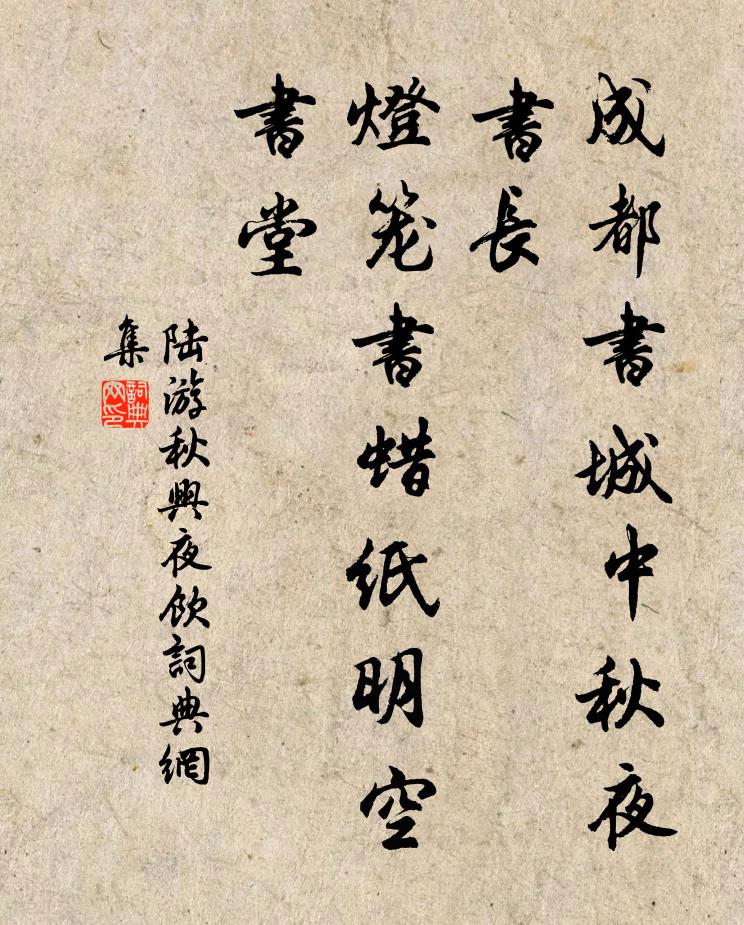 成都書城中秋夜
書長
燈笼書蜡紙明空
書堂
陆游秋興夜飲詞典網
集
詞典
网印